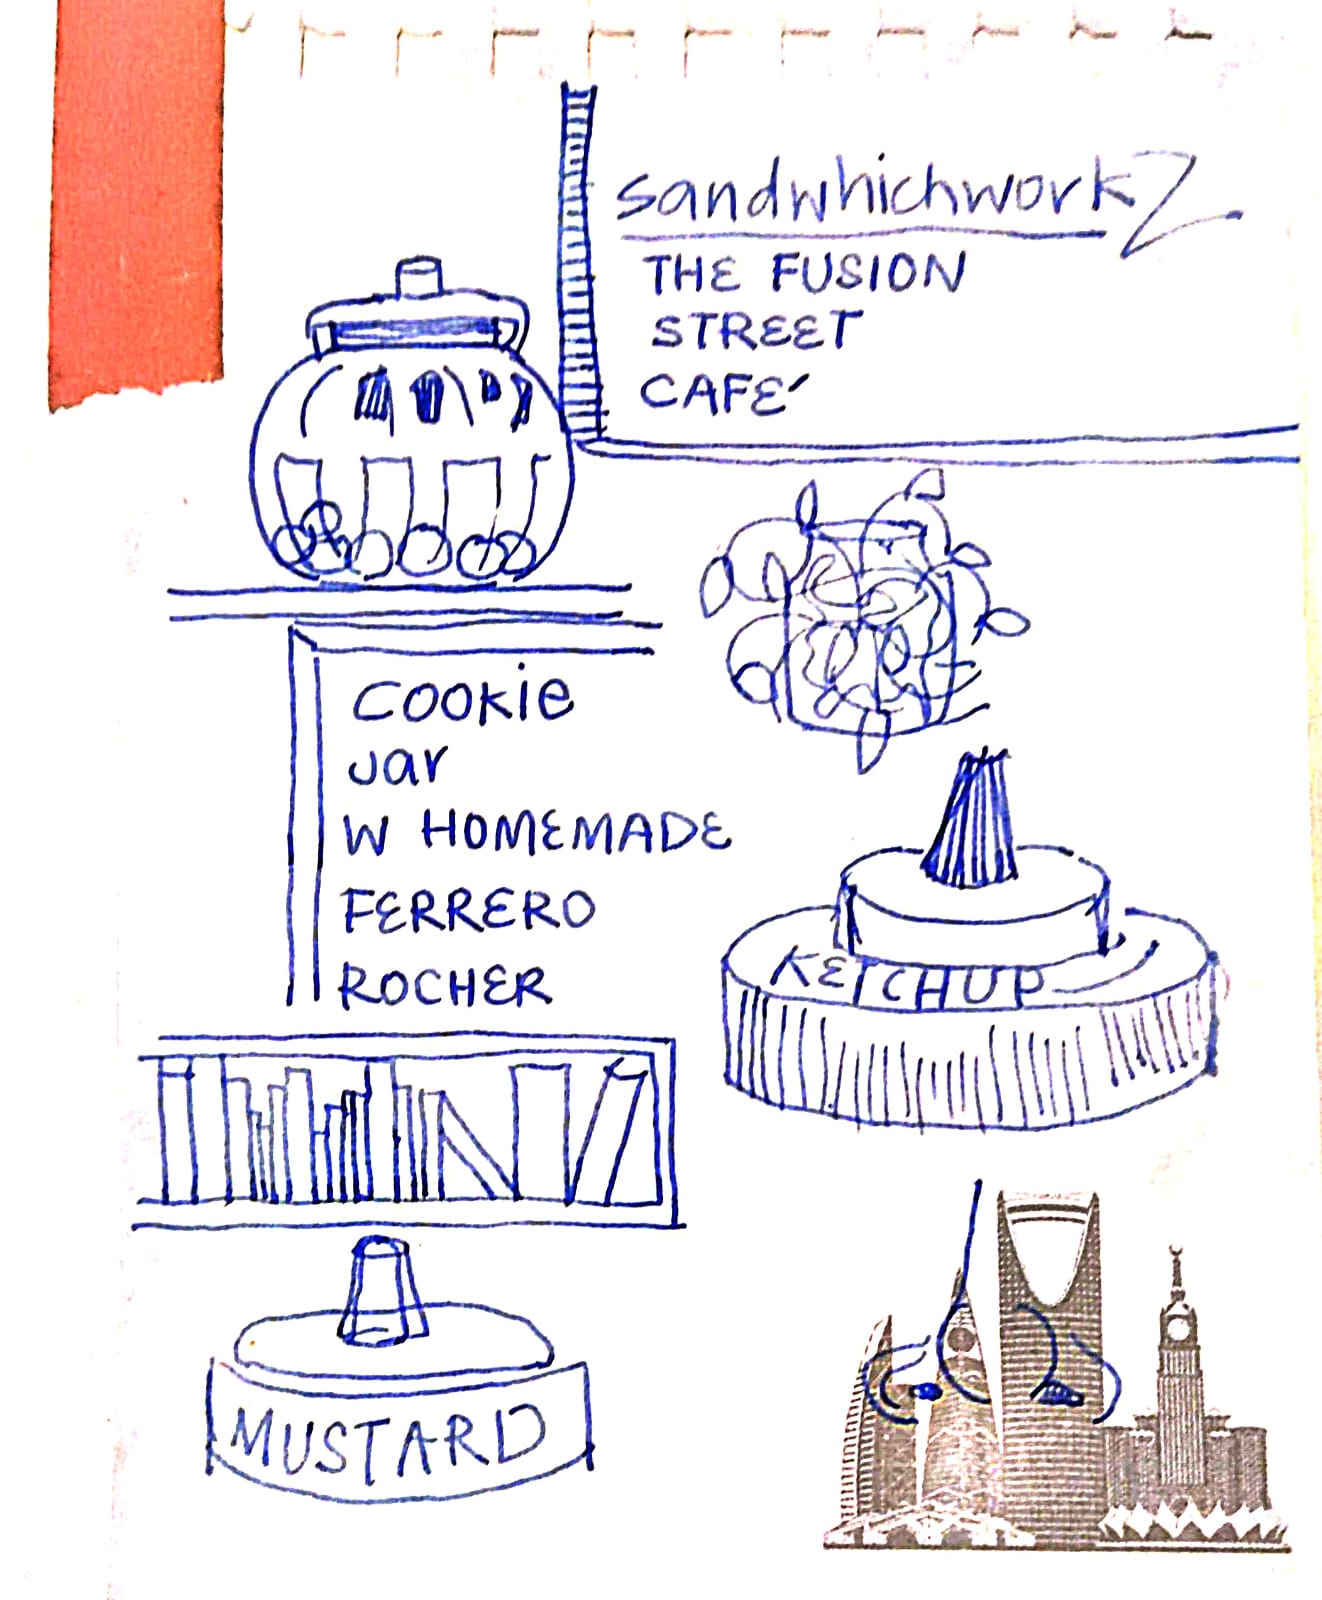 sandwhichworkZ
THE FUSION
STREET
CAFE´
COOKie
Jar
W HOMEMADE
FERRERO
ROCHER
KETCHUP
MUSTARD